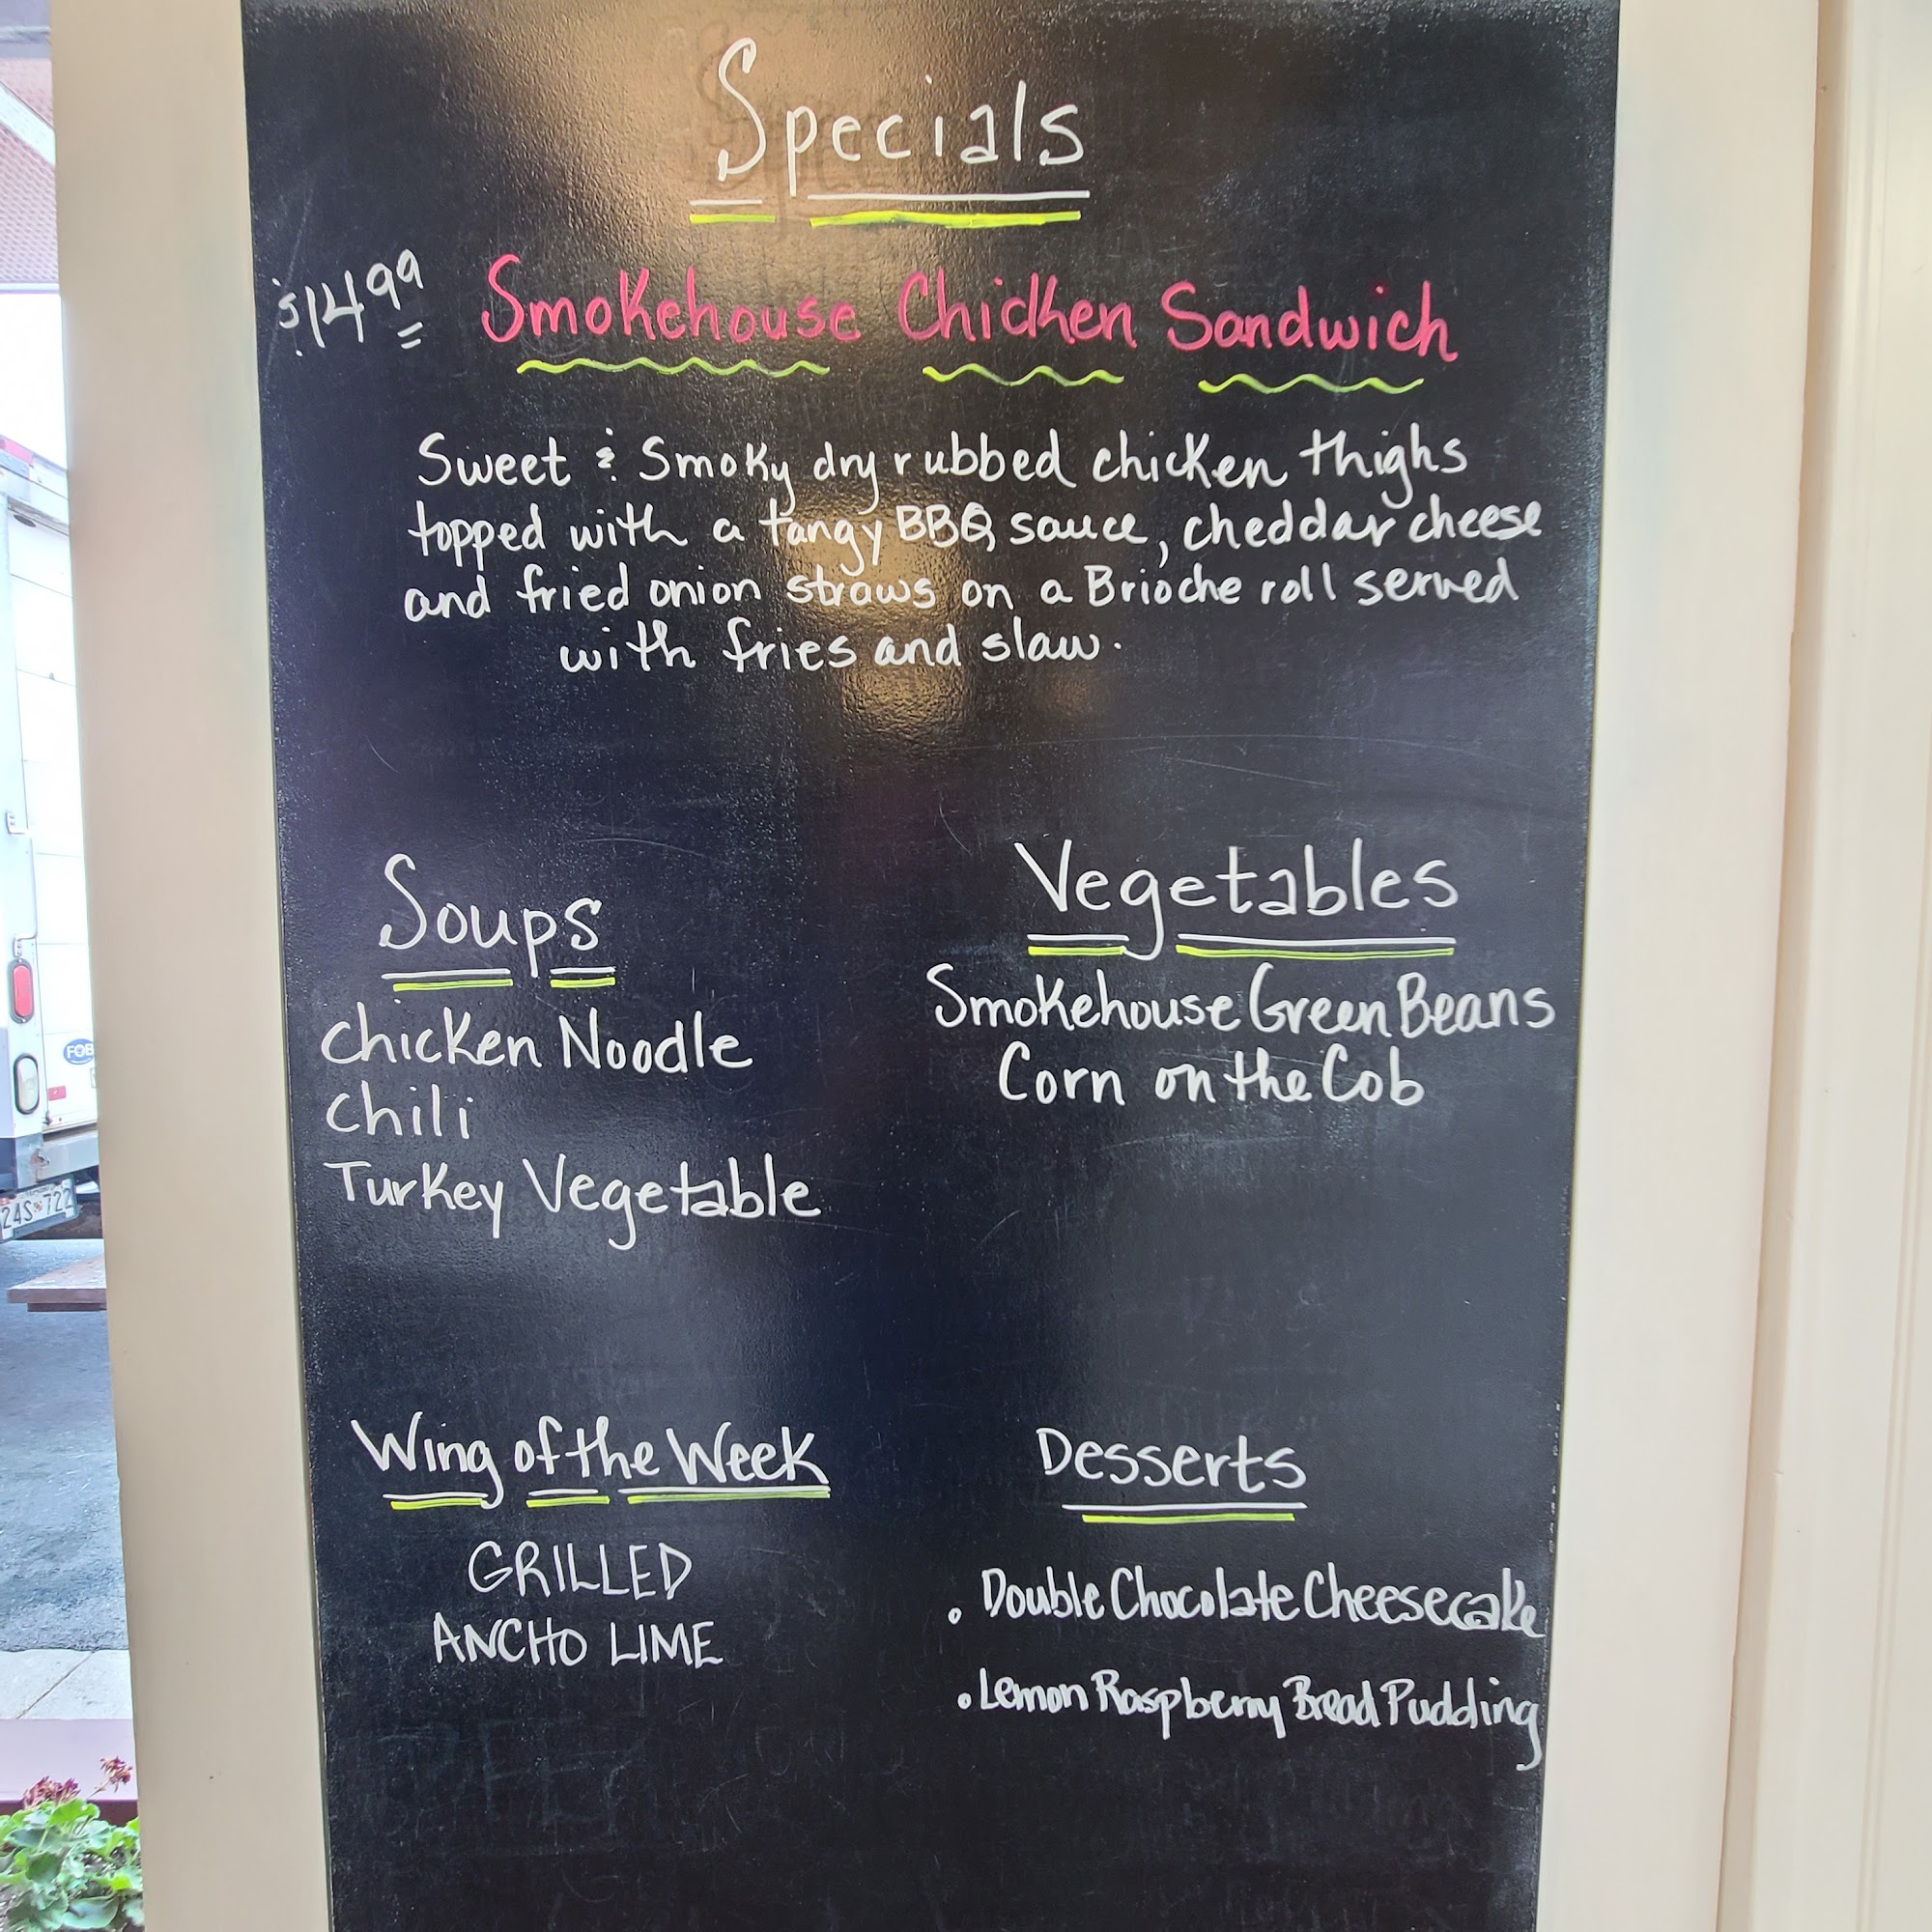 Specials
$14.99 Smokehouse Chicken Sandwich
Sweet & Smoky dry rubbed chicken thighs
topped with a tangy BBQ sauce, cheddar cheese
and fried onion straws on a Brioche roll served
with fries and slaw.
Soups
Chicken Noodle
Chili
Turkey Vegetable
Vegetables
Smokehouse Green Beans
Corn on the Cob
Wing of the Week
GRILLED
ANCHO LIME
Desserts
• Double Chocolate Cheesecake
• Lemon Raspberry Bread Pudding
FOB
24S 722